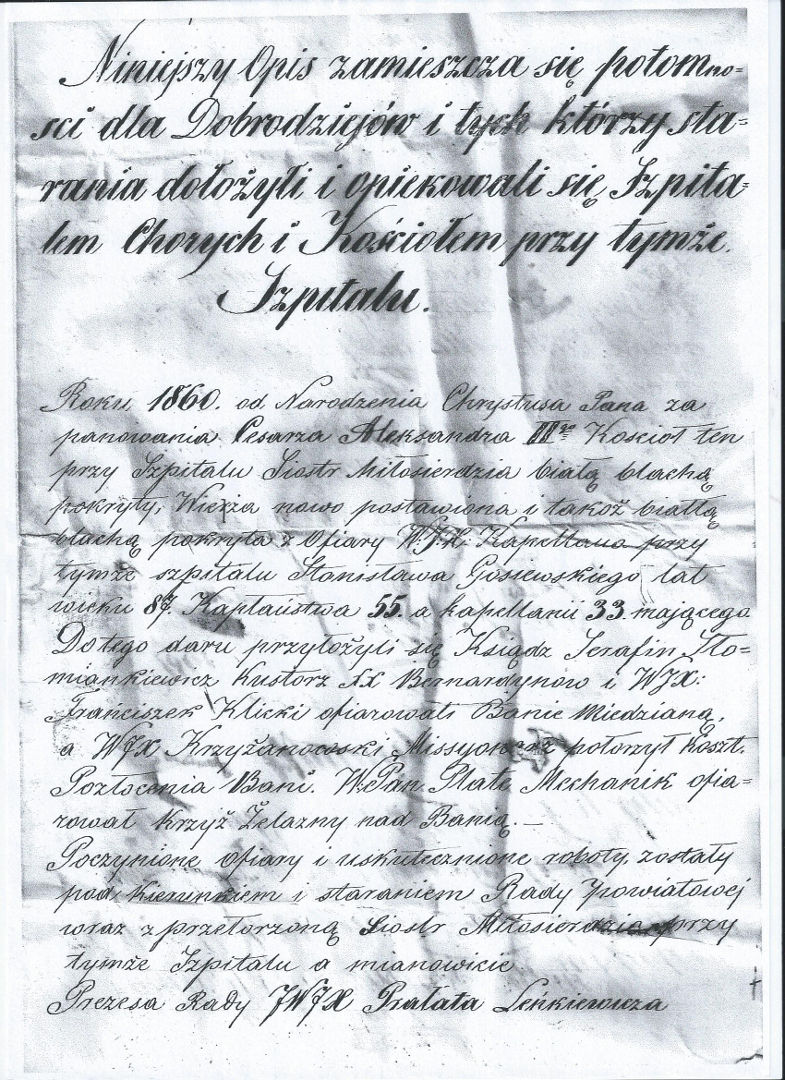 Niniejszy Opis zamieszcza się potomno=
sci dla Dobrodziejów i tych którzy sta=
rania dołożyli i opiekowali się Szpita=
lem Chorych i Kościołem przy tymże
Szpitalu.
Roku 1860. od Narodzenia Chrystusa Pana za
panowania Cesarza Aleksandra II Kościoł ten
przy Szpitalu Siostr Miłosierdzia białą blachą
pokryty, Wierza nowo postawiona i takoż białą
blachą pokryta z Ofiary W.J.X. Kapellana przy
tymże szpitalu Stanisława Gosiewskiego lat
wieku 87. Kapłaństwa 55. a kapellanii 33. mającego
Do tego daru przyłożyli się Ksiądz Serafin Sło=
miankiewicz Kustorz XX Bernardynów i WJX:
Frańciszek Klicki ofiarowali Banie Miedzianą,
a WJX Krzyżanowski Missyonarz położył koszt
Pozłocenia Bani. W.Pan Plate Mechanik ofia=
rował Krzyż Żelazny nad Banią.—
Poczynione ofiary i uskutecznione roboty, zostały
pod kierunkiem i staraniem Rady Powiatowej
wraz z przełorzoną Siostr Miłosierdzia przy
tymże Szpitalu a mianowicie
Prezesa Rady JWJX Prałata Leńkiewicza